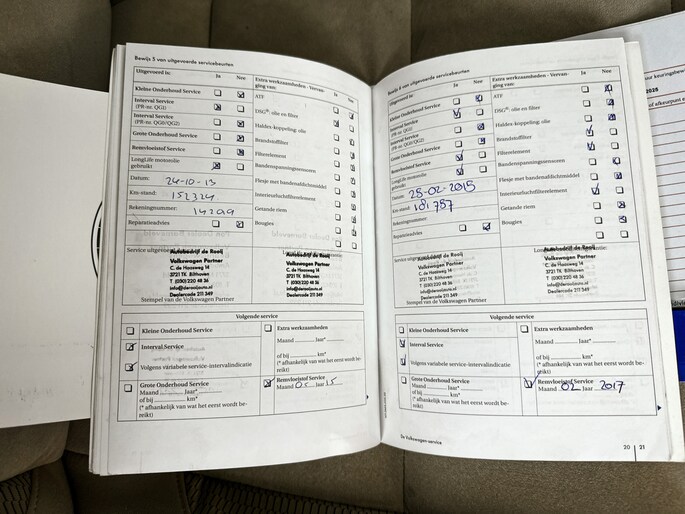 Bewijs 5 van uitgevoerde servicebeurten
Uitgevoerd is: Ja Nee
Kleine Onderhoud Service
Interval Service
(PR-nr. QG1)
Interval Service
(PR-nr. QG0/QG2)
Grote Onderhoud Service
Remvloeistof Service
LongLife motorolie
gebruikt
Datum: 24-10-13
Km-stand: 152324
Rekeningnummer: 14299
Reparatieadvies
Extra werkzaamheden - Vervan- Ja Nee
ging van:
ATF
DSG®: olie en filter
Haldex-koppeling: olie
Brandstoffilter
Filterelement
Bandenspanningssensoren
Flesje met bandenafdichtmiddel
Interieurluchtfilterelement
Getande riem
Bougies
Service uitgevoerd
Autobedrijf de Rooij
Volkswagen Partner
C. de Haasweg 14
3721 TK Bilthoven
T (030) 220 48 36
info@derooijauto.nl
Dealercode 211 349
Stempel van de Volkswagen Partner
Volgende service
Kleine Onderhoud Service
Interval Service
Volgens variabele service-intervalindicatie
Grote Onderhoud Service
Maand Jaar*
of bij km*
(* afhankelijk van wat het eerst wordt be-
reikt)
Extra werkzaamheden
Maand Jaar*
of bij km*
(* afhankelijk van wat het eerst wordt be-
reikt)
Remvloeistof Service
Maand 05 Jaar 15
Bewijs 6 van uitgevoerde servicebeurten
Uitgevoerd is: Ja Nee
Kleine Onderhoud Service
Interval Service
(PR-nr. QG1)
Interval Service
(PR-nr. QG0/QG2)
Grote Onderhoud Service
Remvloeistof Service
LongLife motorolie
gebruikt
Datum: 25-02-2015
Km-stand: 181 757
Rekeningnummer:
Reparatieadvies
Extra werkzaamheden - Vervan- Ja Nee
ging van:
ATF
DSG®: olie en filter
Haldex-koppeling: olie
Brandstoffilter
Filterelement
Bandenspanningssensoren
Flesje met bandenafdichtmiddel
Interieurluchtfilterelement
Getande riem
Bougies
Service uitgevoerd
Autobedrijf de Rooij
Volkswagen Partner
C. de Haasweg 14
3721 TK Bilthoven
T (030) 220 48 36
info@derooijauto.nl
Dealercode 211 349
Autobedrijf de Rooij
Volkswagen Partner
C. de Haasweg 14
3721 TK Bilthoven
T (030) 220 48 36
info@derooijauto.nl
Dealercode 211 349
Stempel van de Volkswagen Partner
Volgende service
Kleine Onderhoud Service
Interval Service
Volgens variabele service-intervalindicatie
Grote Onderhoud Service
Maand Jaar*
of bij km*
(* afhankelijk van wat het eerst wordt be-
reikt)
Extra werkzaamheden
Maand Jaar*
of bij km*
(* afhankelijk van wat het eerst wordt be-
reikt)
Remvloeistof Service
Maand 02 Jaar 2017
De Volkswagen-service
20 21
2025
of afkeurpunt e